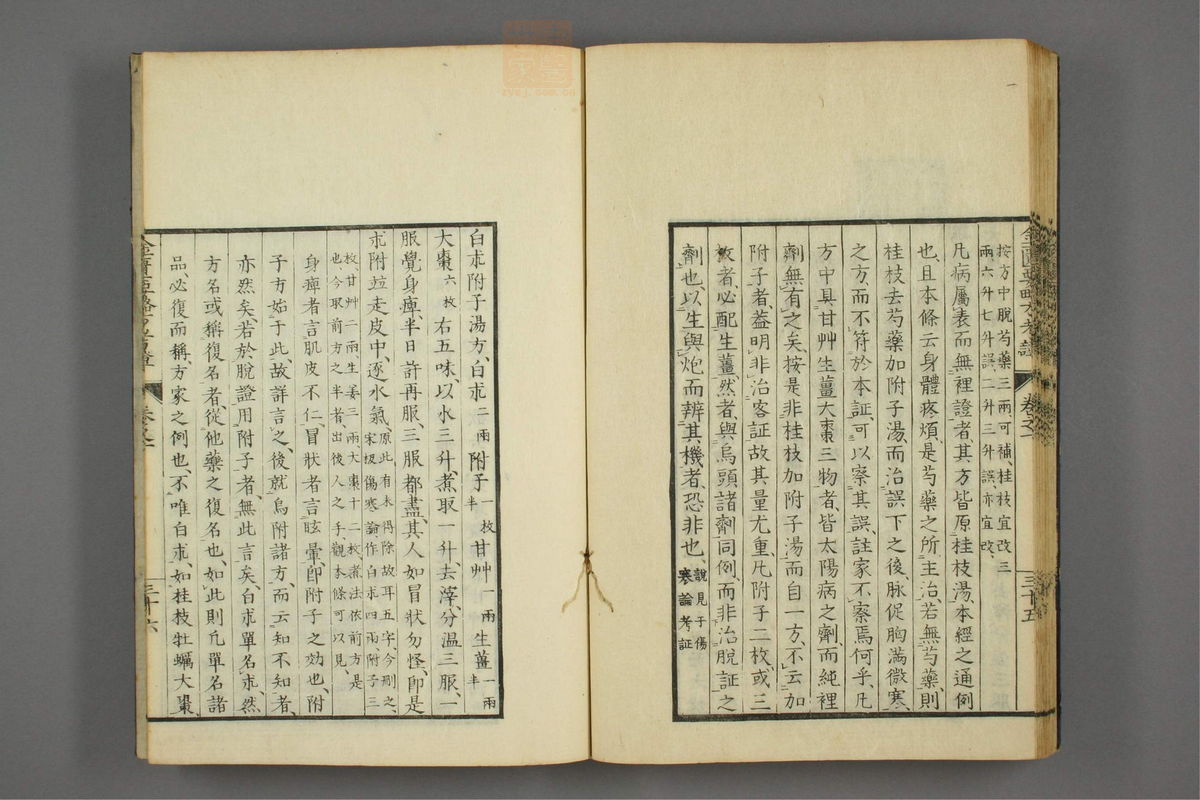 按方中脫芍藥三兩可補、桂枝宜改三
兩、六升七升誤、二升三升誤、亦宜改、
凡病屬表而無裡證者、其方皆原桂枝湯、本經之通例
也、且本條云身體疼煩、是芍藥之所主治、若無芍藥、則
桂枝去芍藥加附子湯、而治誤下之後、脉促胸滿微寒、
之方、而不符於本証、可以察其誤、註家不察焉何乎、凡
方中具甘艸生薑大棗三物者、皆太陽病之劑、而純裡
劑無有之矣、按是非桂枝加附子湯、而自一方、不云加
附子者、蓋明非治客証故其量尤重、凡附子二枚、或三
枚者、必配生薑、然者、與烏頭諸劑同例、而非治脫証之
劑也、以生與炮而辨其機者、恐非也、
說見于傷
寒論考証
卷之一
三十五
白朮附子湯方、白朮二兩附子一枚半甘艸一兩生薑一兩半
大棗六枚右五味、以水三升、煮取一升、去滓、分温三服、一
服覺身痺、半日許再服、三服都盡、其人如冒狀勿怪、卽是
朮附竝走皮中、逐水氣、
原此有未得除故耳五字、今刪之、
宋板傷寒論作白朮四兩附子三
枚、甘艸二兩、生姜三兩大棗十二枚、煮法依前方、是
也、今取前方之半者、出後人之手、觀本條可以見、
身痺者言肌皮不仁、冒狀者言眩暈、卽附子之効也、附
子方始于此、故詳言之、後就烏附諸方、而云知不知者、
亦然矣、若於脫證用附子者、無此言矣、白朮單名朮、然
方名或稱復名者、從他藥之復名也、如此則凡單名諸
品、必復而稱、方家之例也、不唯白朮、如桂枝牡蠣大棗、
卷之一
三十六